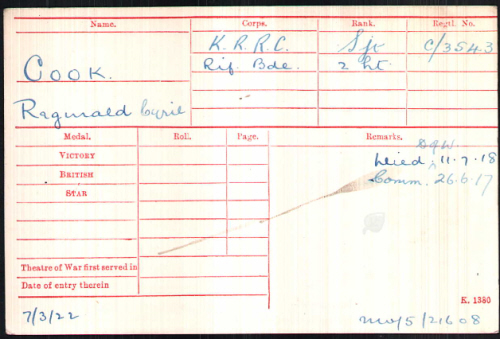 Name. Corps. Rank. Regtl. No.
K. R. R. C. Sjt C/3543
Cook. Rif. Bde. 2 Lt.
Reginald Cyril
Medal. Roll. Page. Remarks.
VICTORY DofW.
BRITISH Died 11.7.18
STAR Comm. 26.6.17
Theatre of War first served in
Date of entry therein
K. 1380
7/3/22 NW/5/21608